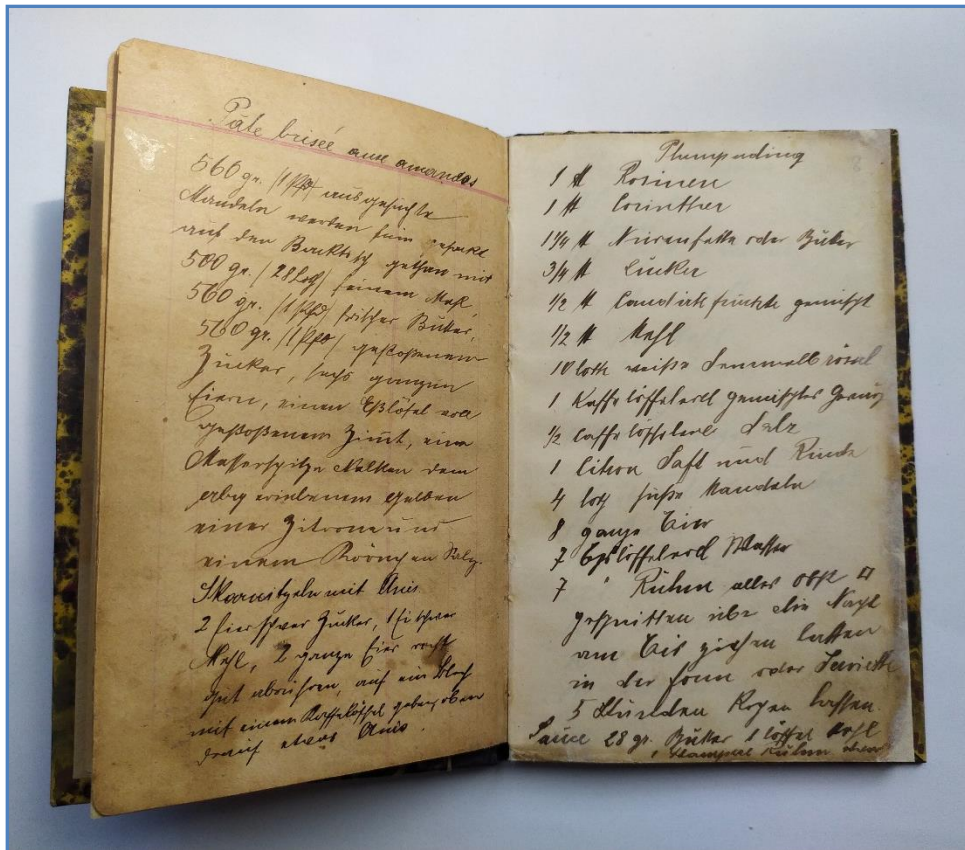 Pâte brisée aux amandes
560 gr. (1 Pfd) ausgesuchte
Mandeln werden fein gehackt
auf den Backtisch gethan mit
500 gr. (28 Loth) feinem Mehl,
560 gr. (1 Pfd) frischer Butter,
560 gr. (1 Pfd) gestoßenem
Zucker, sechs ganzen
Eiern, einen Eßlöfel voll
gestoßenem Zimt, eine
Messerspitze Nelken dem
abgeriebenem gelben
einer Zitrone und
einem Körnchen Salz.
Skarnitzeln mit Anis.
2 Eier schwer Zucker, 1 Ei schwer
Mehl, 2 ganze Eier recht
gut abrühren, auf ein Blech
mit einem Kaffelöffel geben, oben
drauf etwas Anis.
Plumpuding
1 ℔ Rosinen
1 ℔ Corinther
1 1/4 ℔ Nierenfette oder Buter
3/4 ℔ Zucker
1/2 ℔ Candirte früchte gemischt
1/2 ℔ Mehl
10 loth weiße Semmelbrösel
1 Kaffelöffelvoll gemischtes Gewürz
1/2 Caffelöffelvoll Salz
1 Citron Saft und Rinde
4 loth süße Mandeln
8 ganze Eier
7 Esslöffelvoll Wasser
7 " Ruhm alles obst
geschnitten über die Nacht
am Eis ziehen lassen
in der form oder Serviette
5 Stunden Kogen lassen.
Sauce 28 gr. Butter 1 löffel Mehl
1 Stamperl Ruhm